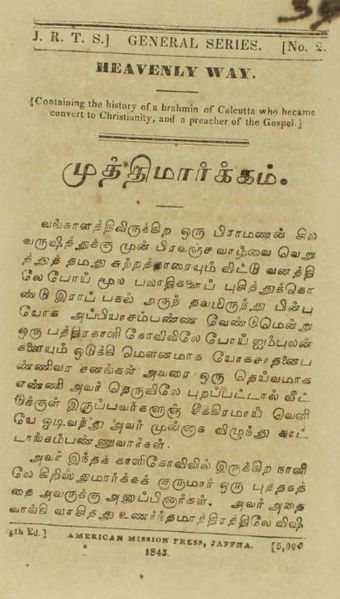 39
J. R. T. S.] GENERAL SERIES. [No. 2.
HEAVENLY WAY.
[Containing the history of a brahmin of Calcutta who became
convert to Christianity, and a preacher of the Gospel.]
முத்திமார்க்கம்.
வங்காளத்திலிருக்கிற ஒரு பிராமணன் சில
வருஷத்துக்கு முன் பிரவஞ்ச வாழ்வை வெறு
த்துத் தமது சுற்றத்தாரையும் விட்டு வனத்தி
லேபோய் மூல பலாதிகளைப் புசித்துக்கொ
ண்டு இராப் பகல் அருந் தவமிருந்து பின்பு
யோக அப்பியாசம்பண்ண வேண்டுமென்று
ஒரு பத்திரகாளி கோவிலிலே போய் ஐம்புலன்
களையும் ஒடுக்கி மௌனமாக யோகசாதனைப
ண்ணிவர சனங்கள் அவரை ஒரு தெய்வமாக
எண்ணி அவர் தெருவிலே புறப்பட்டால் வீட்
டுக்குள் இருப்பவர்களுஞ் சீக்கிரமாய் வெளி
யே ஓடிவந்து அவர் முன்பாக விழுந்து சாட்
டாங்கம்பண்ணுவார்கள்.
அவர் இந்தக் காளிகோவிலில் இருக்கிற நாளி
லே கிறிஸ்துமார்க்கக் குருமார் ஒரு புத்தகத்
தை அவருக்கு அனுப்பினார்கள். அவர் அதை
வாங்கி வாசித்து உணர்ந்தமாத்திரத்திலே விஷ
5th Ed.] AMERICAN MISSION PRESS, JAFFNA. [5,000
1843.